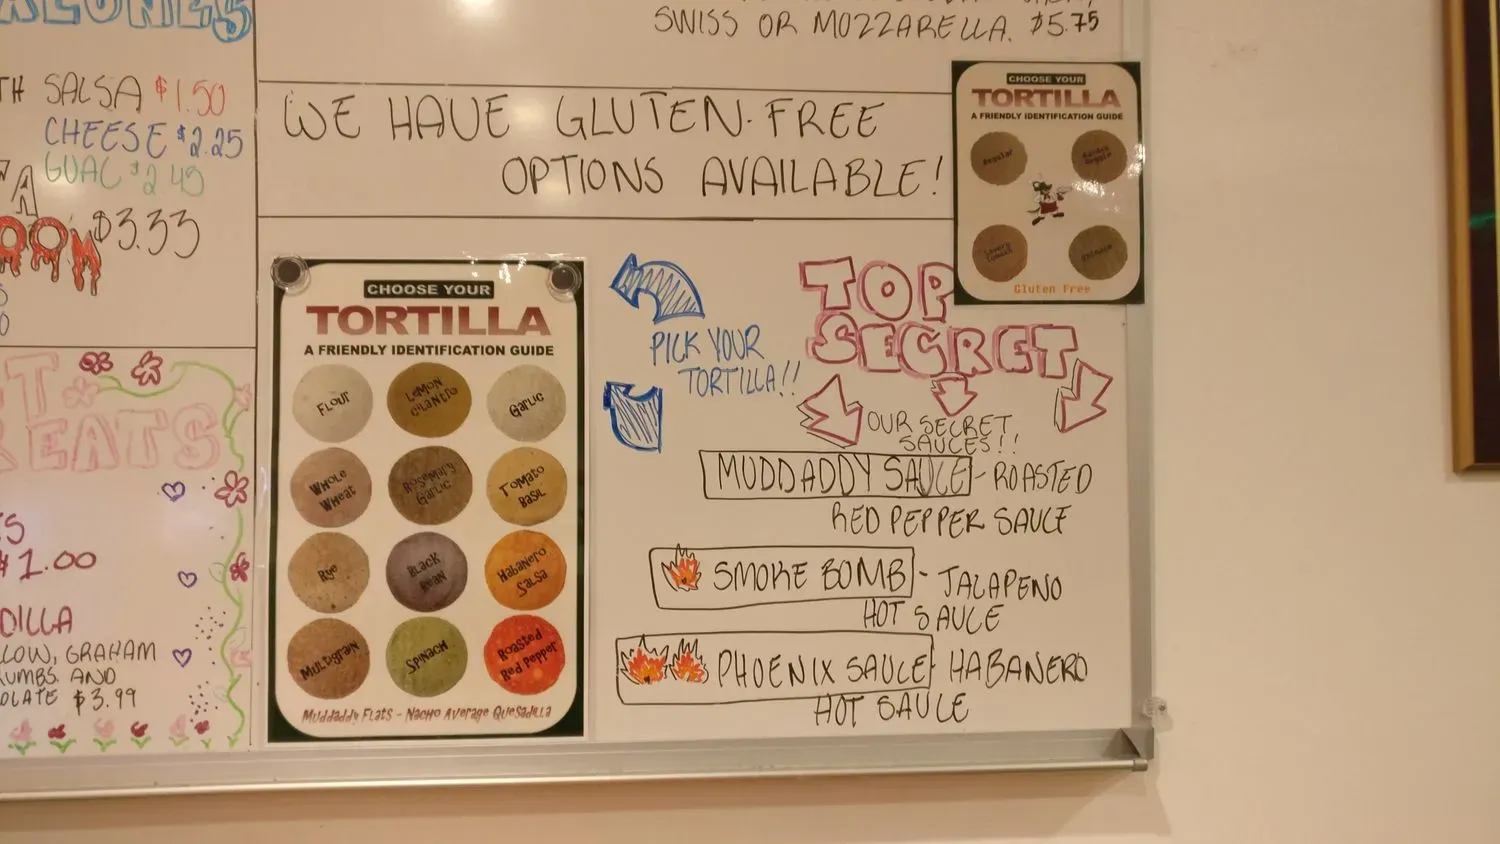 SWISS OR MOZZARELLA. $5.75
SALSA $1.50
CHEESE $2.25
GUAC $2.49
$3.33
WE HAVE GLUTEN-FREE
OPTIONS AVAILABLE!
CHOOSE YOUR
TORTILLA
A FRIENDLY IDENTIFICATION GUIDE
Regular
Garden Veggie
Savory Tomato
Spinach
Gluten Free
$1.00
GRAHAM
AND
$3.99
CHOOSE YOUR
TORTILLA
A FRIENDLY IDENTIFICATION GUIDE
Flour
Lemon Cilantro
Garlic
Whole Wheat
Rosemary Garlic
Tomato Basil
Rye
Black Bean
Habanero Salsa
Multigrain
Spinach
Roasted Red Pepper
Muddaddy Flats - Nacho Average Quesadilla
PICK YOUR
TORTILLA!!
TOP
SECRET
OUR SECRET
SAUCES!!
MUDDADDY SAUCE - ROASTED
RED PEPPER SAUCE
SMOKE BOMB - JALAPENO
HOT SAUCE
PHOENIX SAUCE - HABANERO
HOT SAUCE